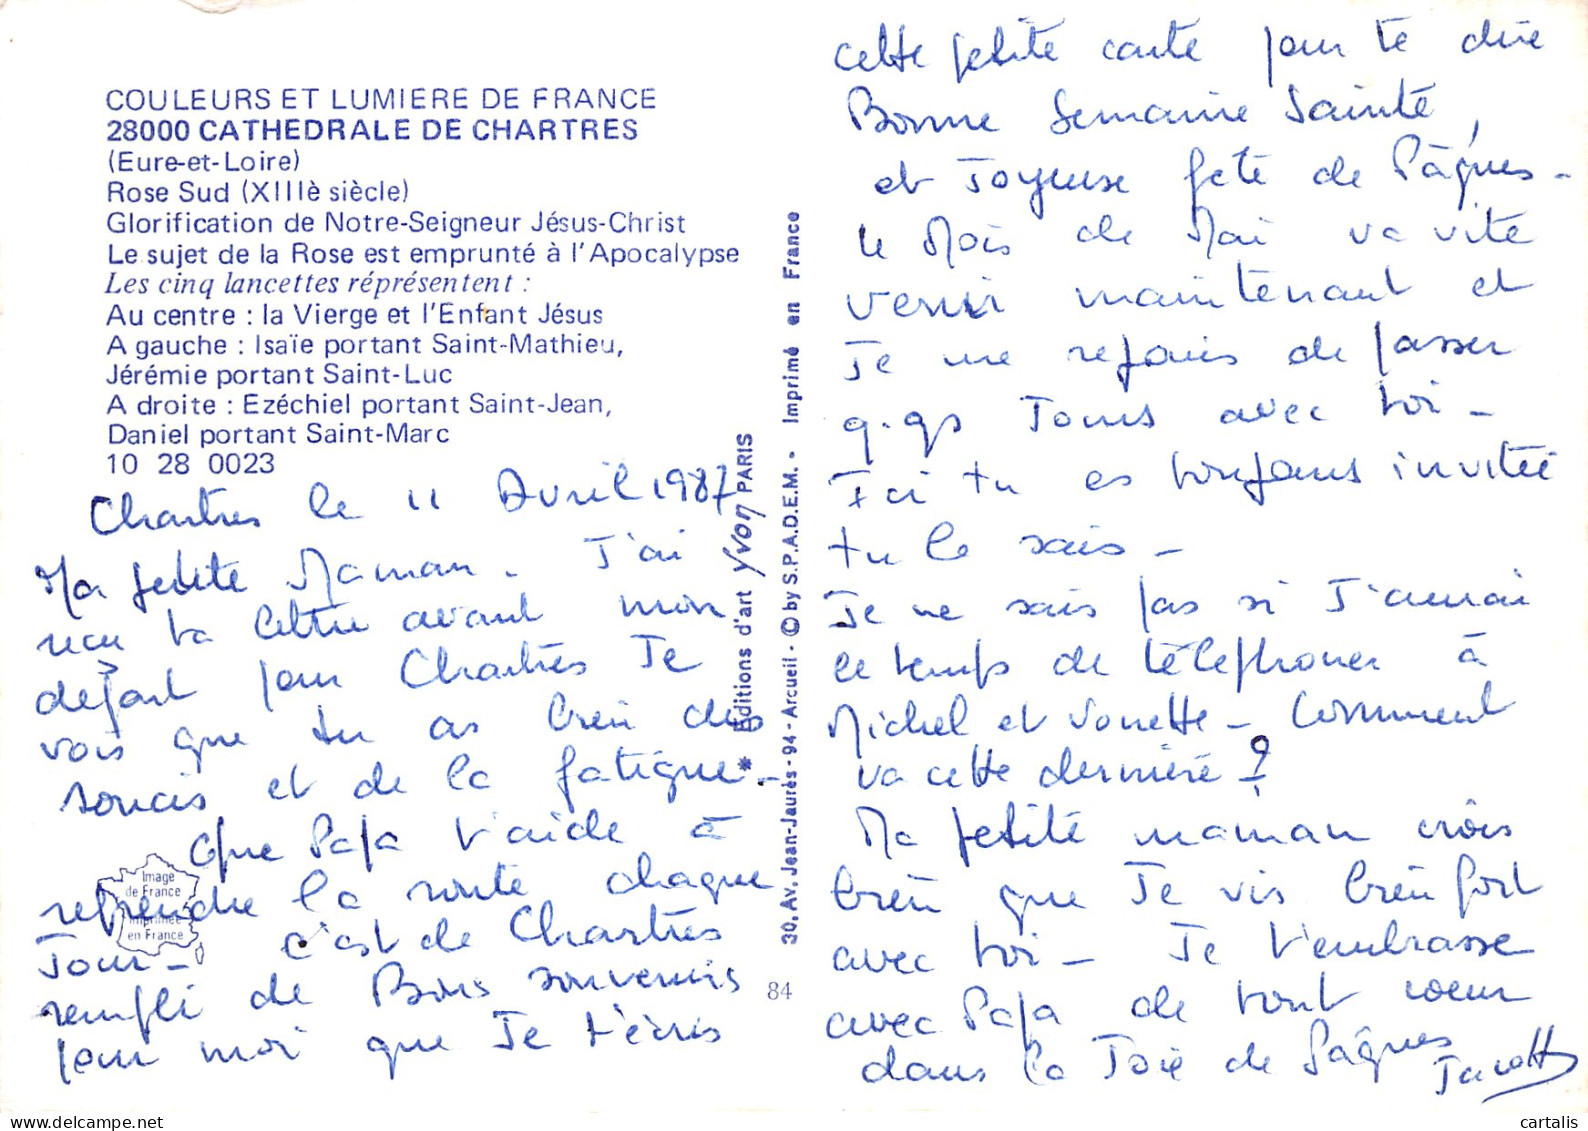 COULEURS ET LUMIERE DE FRANCE
28000 CATHEDRALE DE CHARTRES
(Eure-et-Loire)
Rose Sud (XIIIè siècle)
Glorification de Notre-Seigneur Jésus-Christ
Le sujet de la Rose est emprunté à l'Apocalypse
Les cinq lancettes répréséntent :
Au centre : la Vierge et l'Enfant Jésus
A gauche : Isaïe portant Saint-Mathieu,
Jérémie portant Saint-Luc
A droite : Ezéchiel portant Saint-Jean,
Daniel portant Saint-Marc
10 28 0023
Chartres le 11 Avril 1987
Ma petite Maman. J'ai
reçu ta lettre avant mon
départ pour Chartres Je
vois que tu as bien des
soucis et de la fatigue -
Que Papa t'aide à
reprendre la route chaque
Jour - c'est de Chartres
rempli de Bons souvenirs
pour moi que Je t'écris
Image
de France
imprimée
en France
* Editions d'art Yvon PARIS
30, Av. Jean-Jaurès - 94 - Arcueil - © by S.P.A.D.E.M. - Imprimé en France
84
cette petite carte pour te dire
Bonne Semaine Sainte,
et Joyeuse fête de Pâques -
le Mois de Mai va vite
venir maintenant et
Je me rejouis de passer
q.qs Jours avec toi -
Ici tu es toujours invitée
tu le sais -
Je ne sais pas si J'aurai
le temps de téléphoner à
Michel et - Comment
va cette dernière ?
Ma petite maman crois
bien que Je vis bien fort
avec toi - Je t'embrasse
avec Papa de tout coeur
dans la Joie de Pâques
cartalis